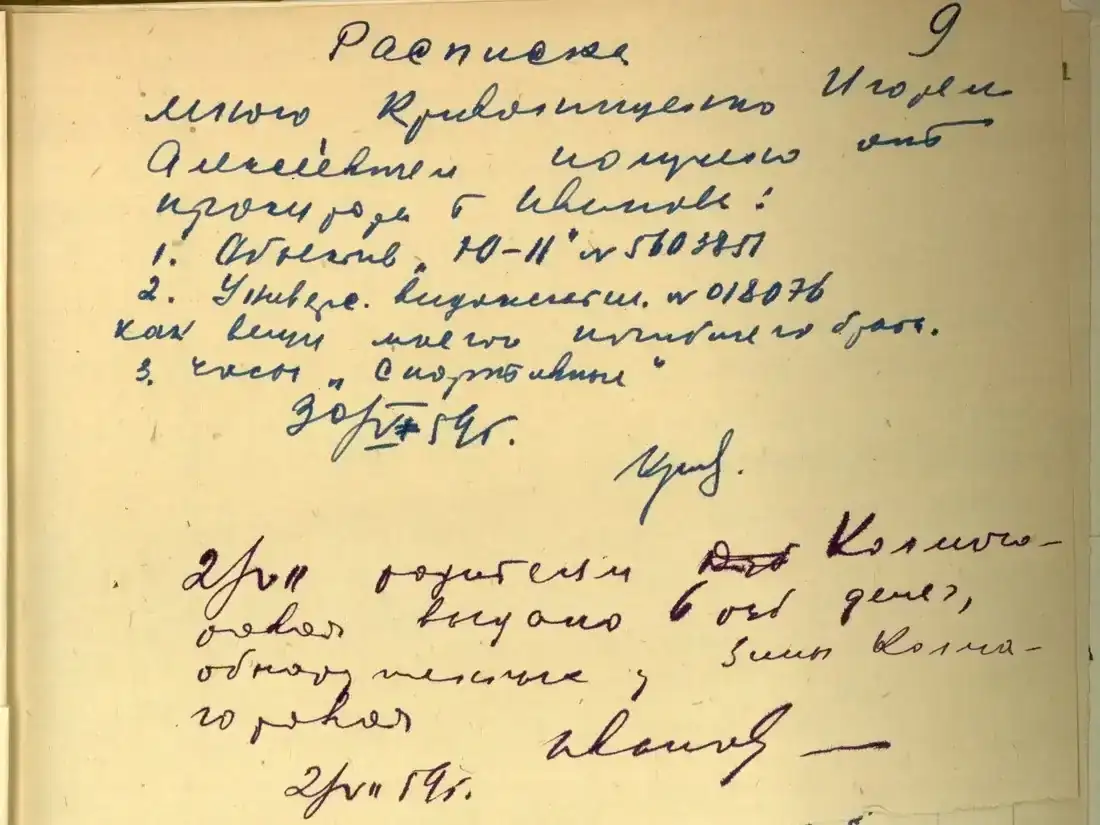 9
Расписка
мною Кривонищенко Игорем
Алексеевичем получено от
прокурора т Иванова:
1. Объектив „Ю-11" № 5603851
2. Универс. видоискат. № 018076
как вещи моего погибшего брата.
3. часы „Спортивные"
30/VI 59г.
Крив.
2/VII родителям Колмого-
ровой выдано 6 руб денег,
обнаруженные у Зины Колмо-
горовой
Иванов
2/VII 59г.